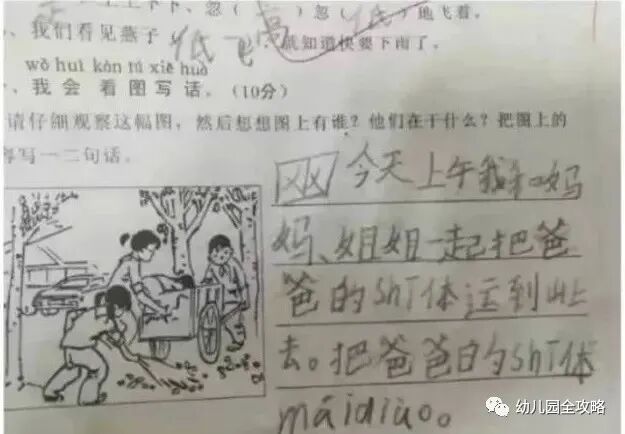 上上下下、忽（高）忽（低）地飞着。
、我们看见燕子低飞，就知道快要下雨了。
wǒ huì kàn tú xiě huà
、我会看图写话。(10分)
请仔细观察这幅图，然后想想图上有谁？他们在干什么？把图上的
容写一二句话。
今天上午我和妈
妈、姐姐一起把爸
爸的ShT体运到山上
去。把爸爸的ShT体
máidiào。
幼儿园全攻略